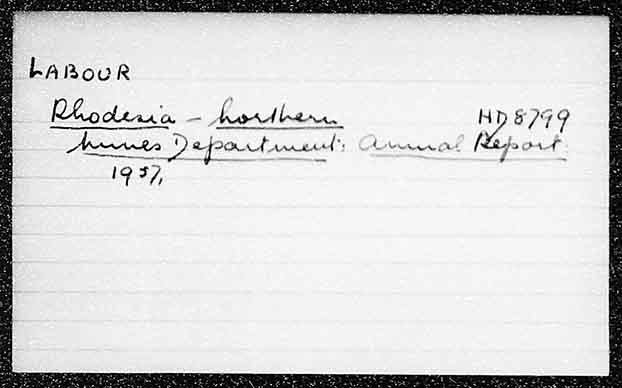 LABOUR
Rhodesia - Northern HD8799
Mines Department: Annual Report.
1957,